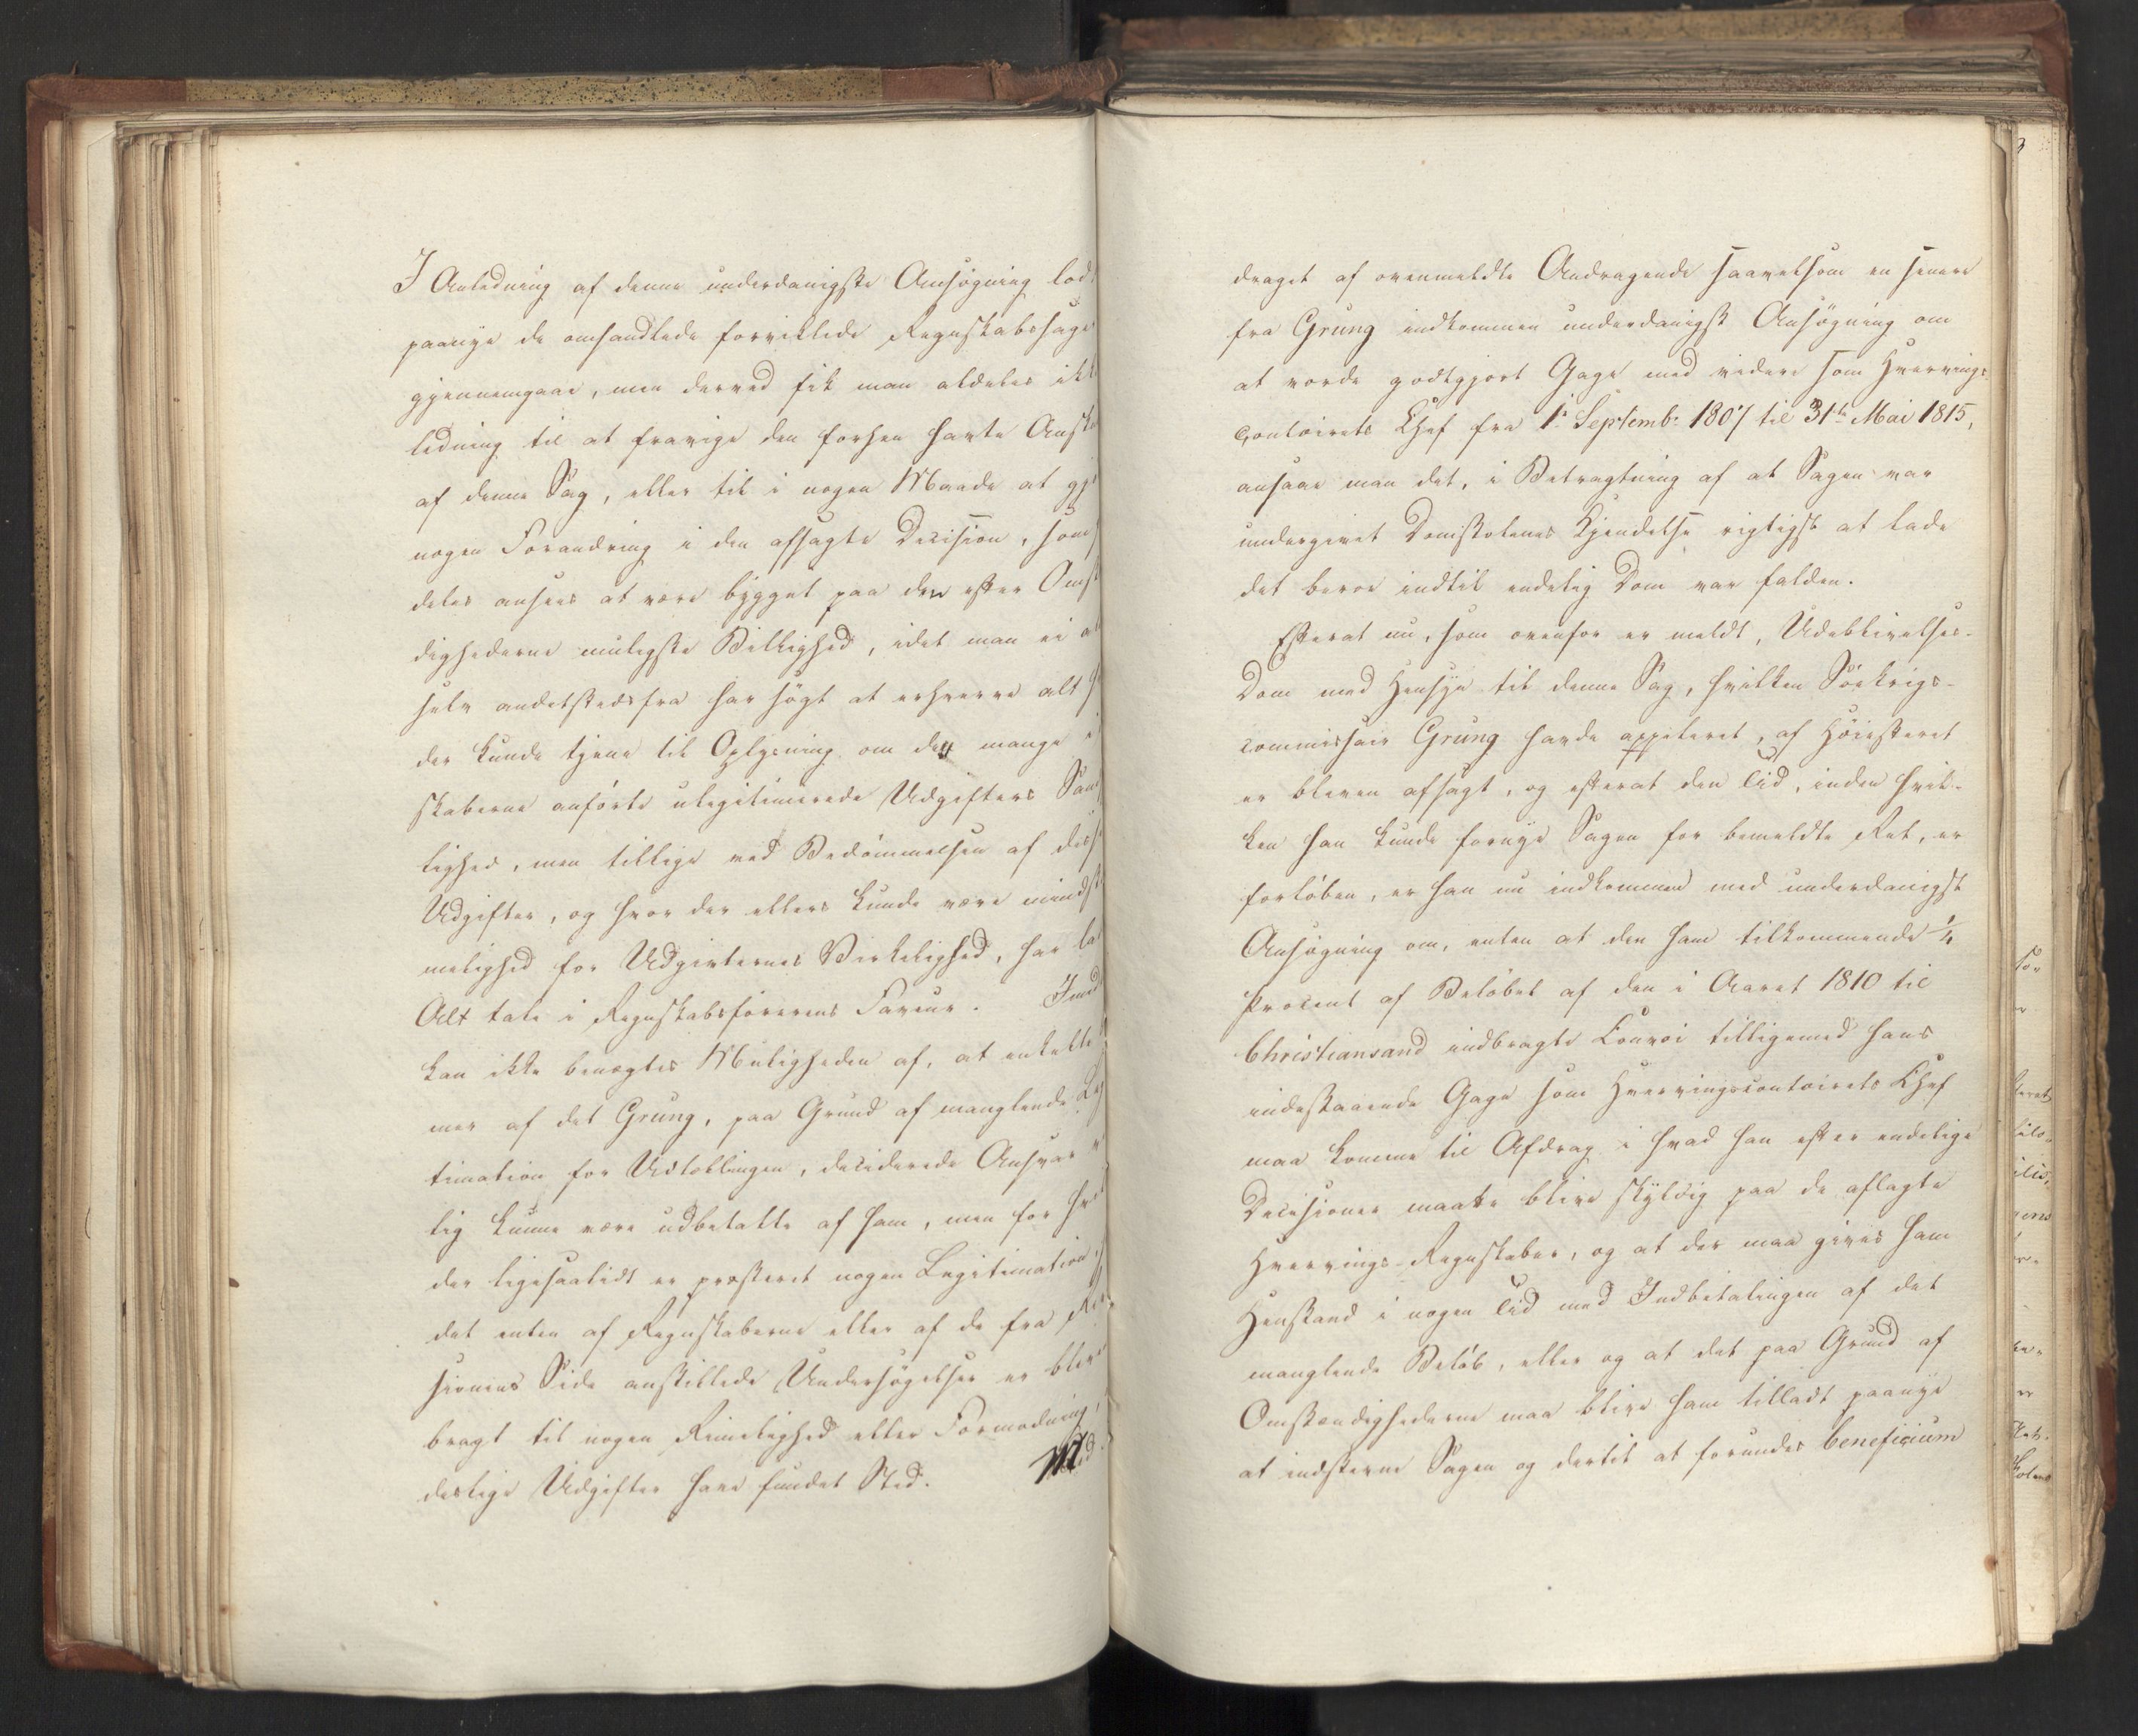 I Anledning af denne underdanigste Ansøgning lod
paanye de omhandlede forviklede Regnskabssage
gjennemgaae, men derved fik man aldeles ikke
ledning til at fravige den forhen havte Ansk
af denne Sag, eller til i nogen Maade at gjø
nogen Forandring i den afsagte Decision, som
deles ansees at være bygget paa den efter Omst
dighederne muligste Billighed, idet man ei al
selv andetstedsfra har søgt at erhverve alt
der kunde tjene til Oplysning om de mange i
skaberne anførte ulegitimerede Udgifters Sand
lighed, men tillige ved Bedømmelsen af disse
Udgifter, og hvor der ellers kunde være mindste
melighed for Udgivternes Virkelighed, har la
Alt tale i Regnskabsførerens Faveur. Imid
kan ikke benægtes Muligheden af, at enkelte
mer af det Grung, paa Grund af manglende Le
timation for Udtællingen, deciderede Ansvar
lig kunne være udbetalte af ham, men for hv
der ligesaalidt er præsteret nogen Legitimation,
det enten af Regnskaberne eller af de fra Re
sionens Side anstillede Undersøgelser er bleve
bragt til nogen Rimelighed eller Formodning,
deslige Udgifter have fundet Sted.
draget af ovenmeldte Andragende saavelsom en senere
fra Grung indkommen underdanigst Ansøgning om
at vorde godtgjort Gage med videre som Hvervings-
Contoirets Chef fra 1. Septemb: 1807 til 31te Mai 1815,
ansaae man det, i Betragtning af at Sagen var
undergivet Domstolenes Kjendelse rigtigst at lade
det beroe indtil endelig Dom var falden.
Efterat nu, som ovenfor er meldt, Udeblivelses-
Dom med Hensyn til denne Sag, hvilken Söekrigs-
commissair Grung havde appeleret, af Höiesteret
er bleven afsagt, og efterat den Tid, inden hvil-
ken han kunde fornye Sagen for bemeldte Ret, er
forløben, er han nu indkommen med underdanigst
Ansøgning om, enten at den ham tilkommende 1/4
Procent af Beløbet af den i Aaret 1810 til
Christiansand indbragte Convoi tilligemed hans
indestaaende Gage som Hvervingscontoirets Chef
maa komme til Afdrag i hvad han efter endelige
Decisioner maatte blive skyldig paa de aflagte
Hvervings-Regnskaber, og at der maa gives ham
Henstand i nogen Tid med Indbetalingen af det
manglende Beløb, eller og at det paa Grund af
Omstændighederne maa blive ham tilladt paanye
at indstevne Sagen og dertil at forundes beneficium